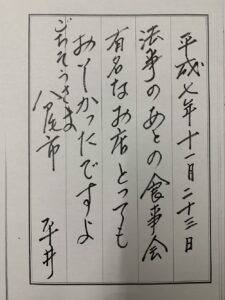 平成七年十一月二十三日
法事のあとの食事会
有名なお店とっても
おいしかったですよ
ごちそうさま
八尾市 平井